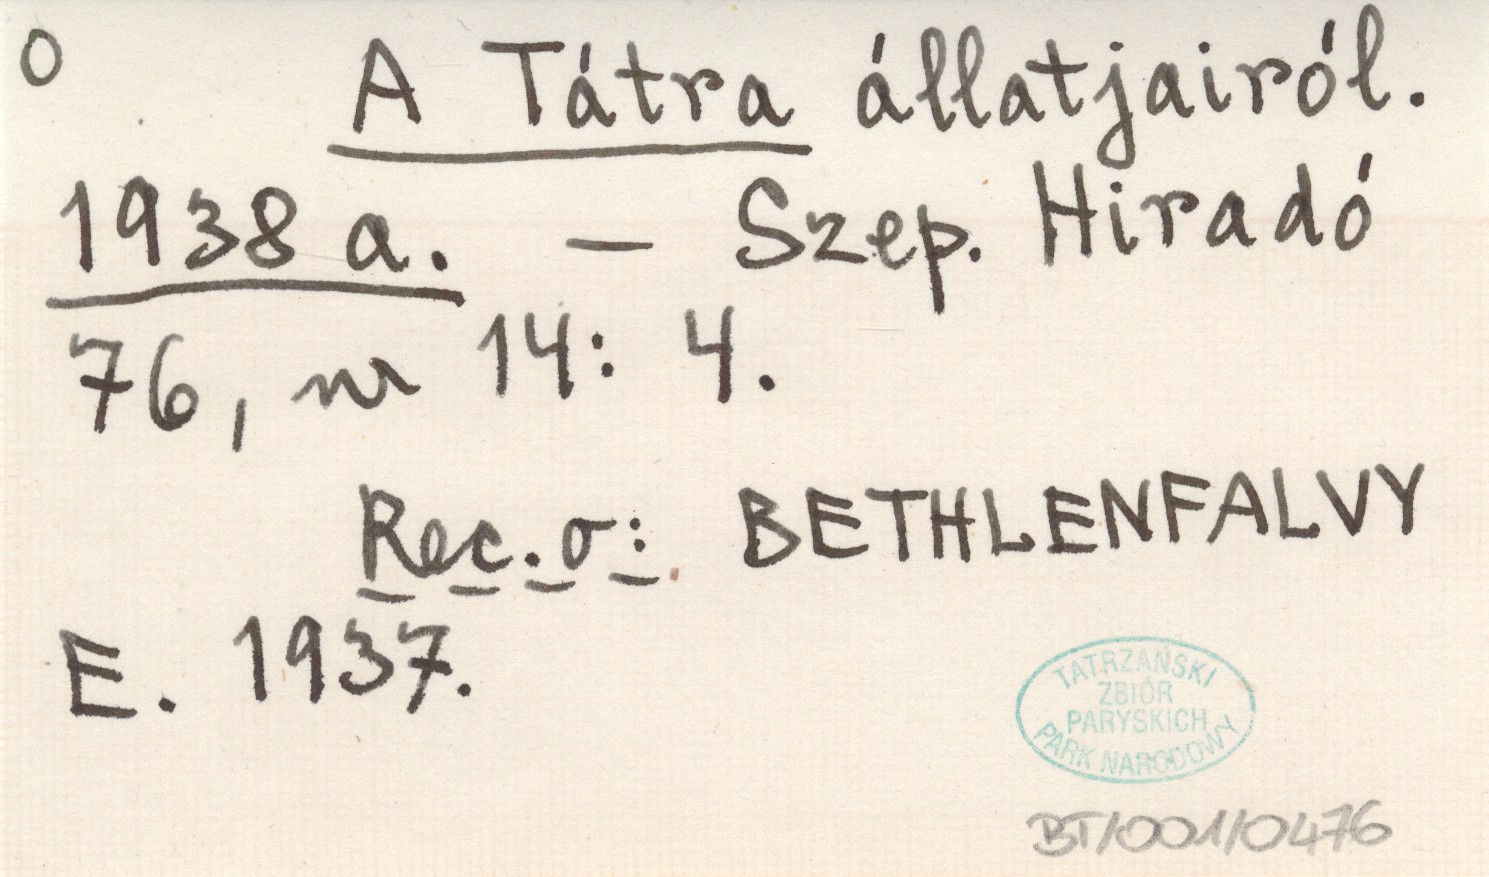 O
A Tátra állatjairól.
1938 a. — Szep. Hiradó
76, nr 14: 4.
Rec. o: BETHLENFALVY
E. 1937.
TATRZAŃSKI
ZBIÓR
PARYSKICH
PARK NARODOWY
BT/001/0476